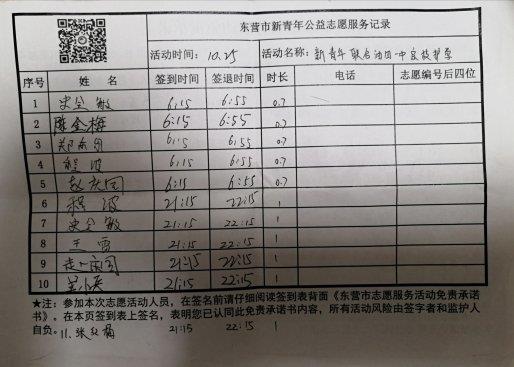 东营市新青年公益志愿服务记录
活动时间: 10.25 活动名称: 新青年 联合油田一中 护学
序号 姓名 签到时间 签退时间 时长 电话 志愿编号后四位
1 史全敏 6:15 6:55 0.7
2 陈金梅 6:15 6:55 0.7
3 6:15 6:55 0.7
4 程波 6:15 6:55 0.7
5 赵庆国 6:15 6:55 0.7
6 程波 21:15 22:15 1
7 史全敏 21:15 22:15 1
8 王雷 21:15 22:15 1
9 21:15 22:15 1
10 21:15 22:15 1
★注: 参加本次志愿活动人员，在签名前请仔细阅读签到表背面《东营市志愿服务活动免责承诺
书》。在本页签到表上签名，表明您已认同此免责承诺书内容，所有活动风险由签字者和监护人
自负。 11. 张 21:15 22:15 1